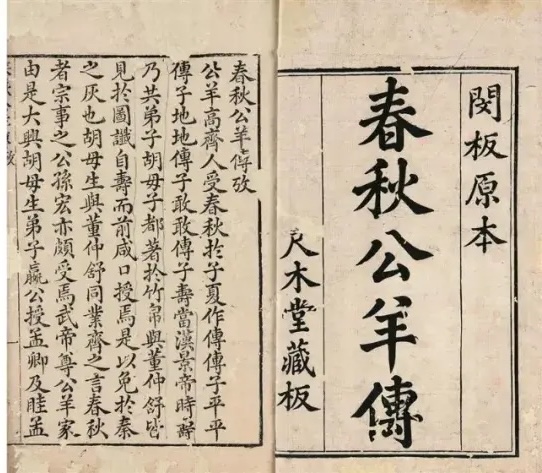 閔板原本
春秋公羊傳
尺木堂藏板
春秋公羊傳攷
公羊高齊人受春秋於子夏作傳傳子平平
傳子地地傳子敢敢傳子壽當漢景帝時壽
乃共弟子胡毋子都著於竹帛與董仲舒皆
見於圖讖自壽而前咸口授焉是以免於秦
之灰也胡毋生與董仲舒同業齊之言春秋
者宗事之公孫宏亦頗受焉武帝尊公羊家
由是大興胡毋生弟子嬴公授孟卿及眭孟